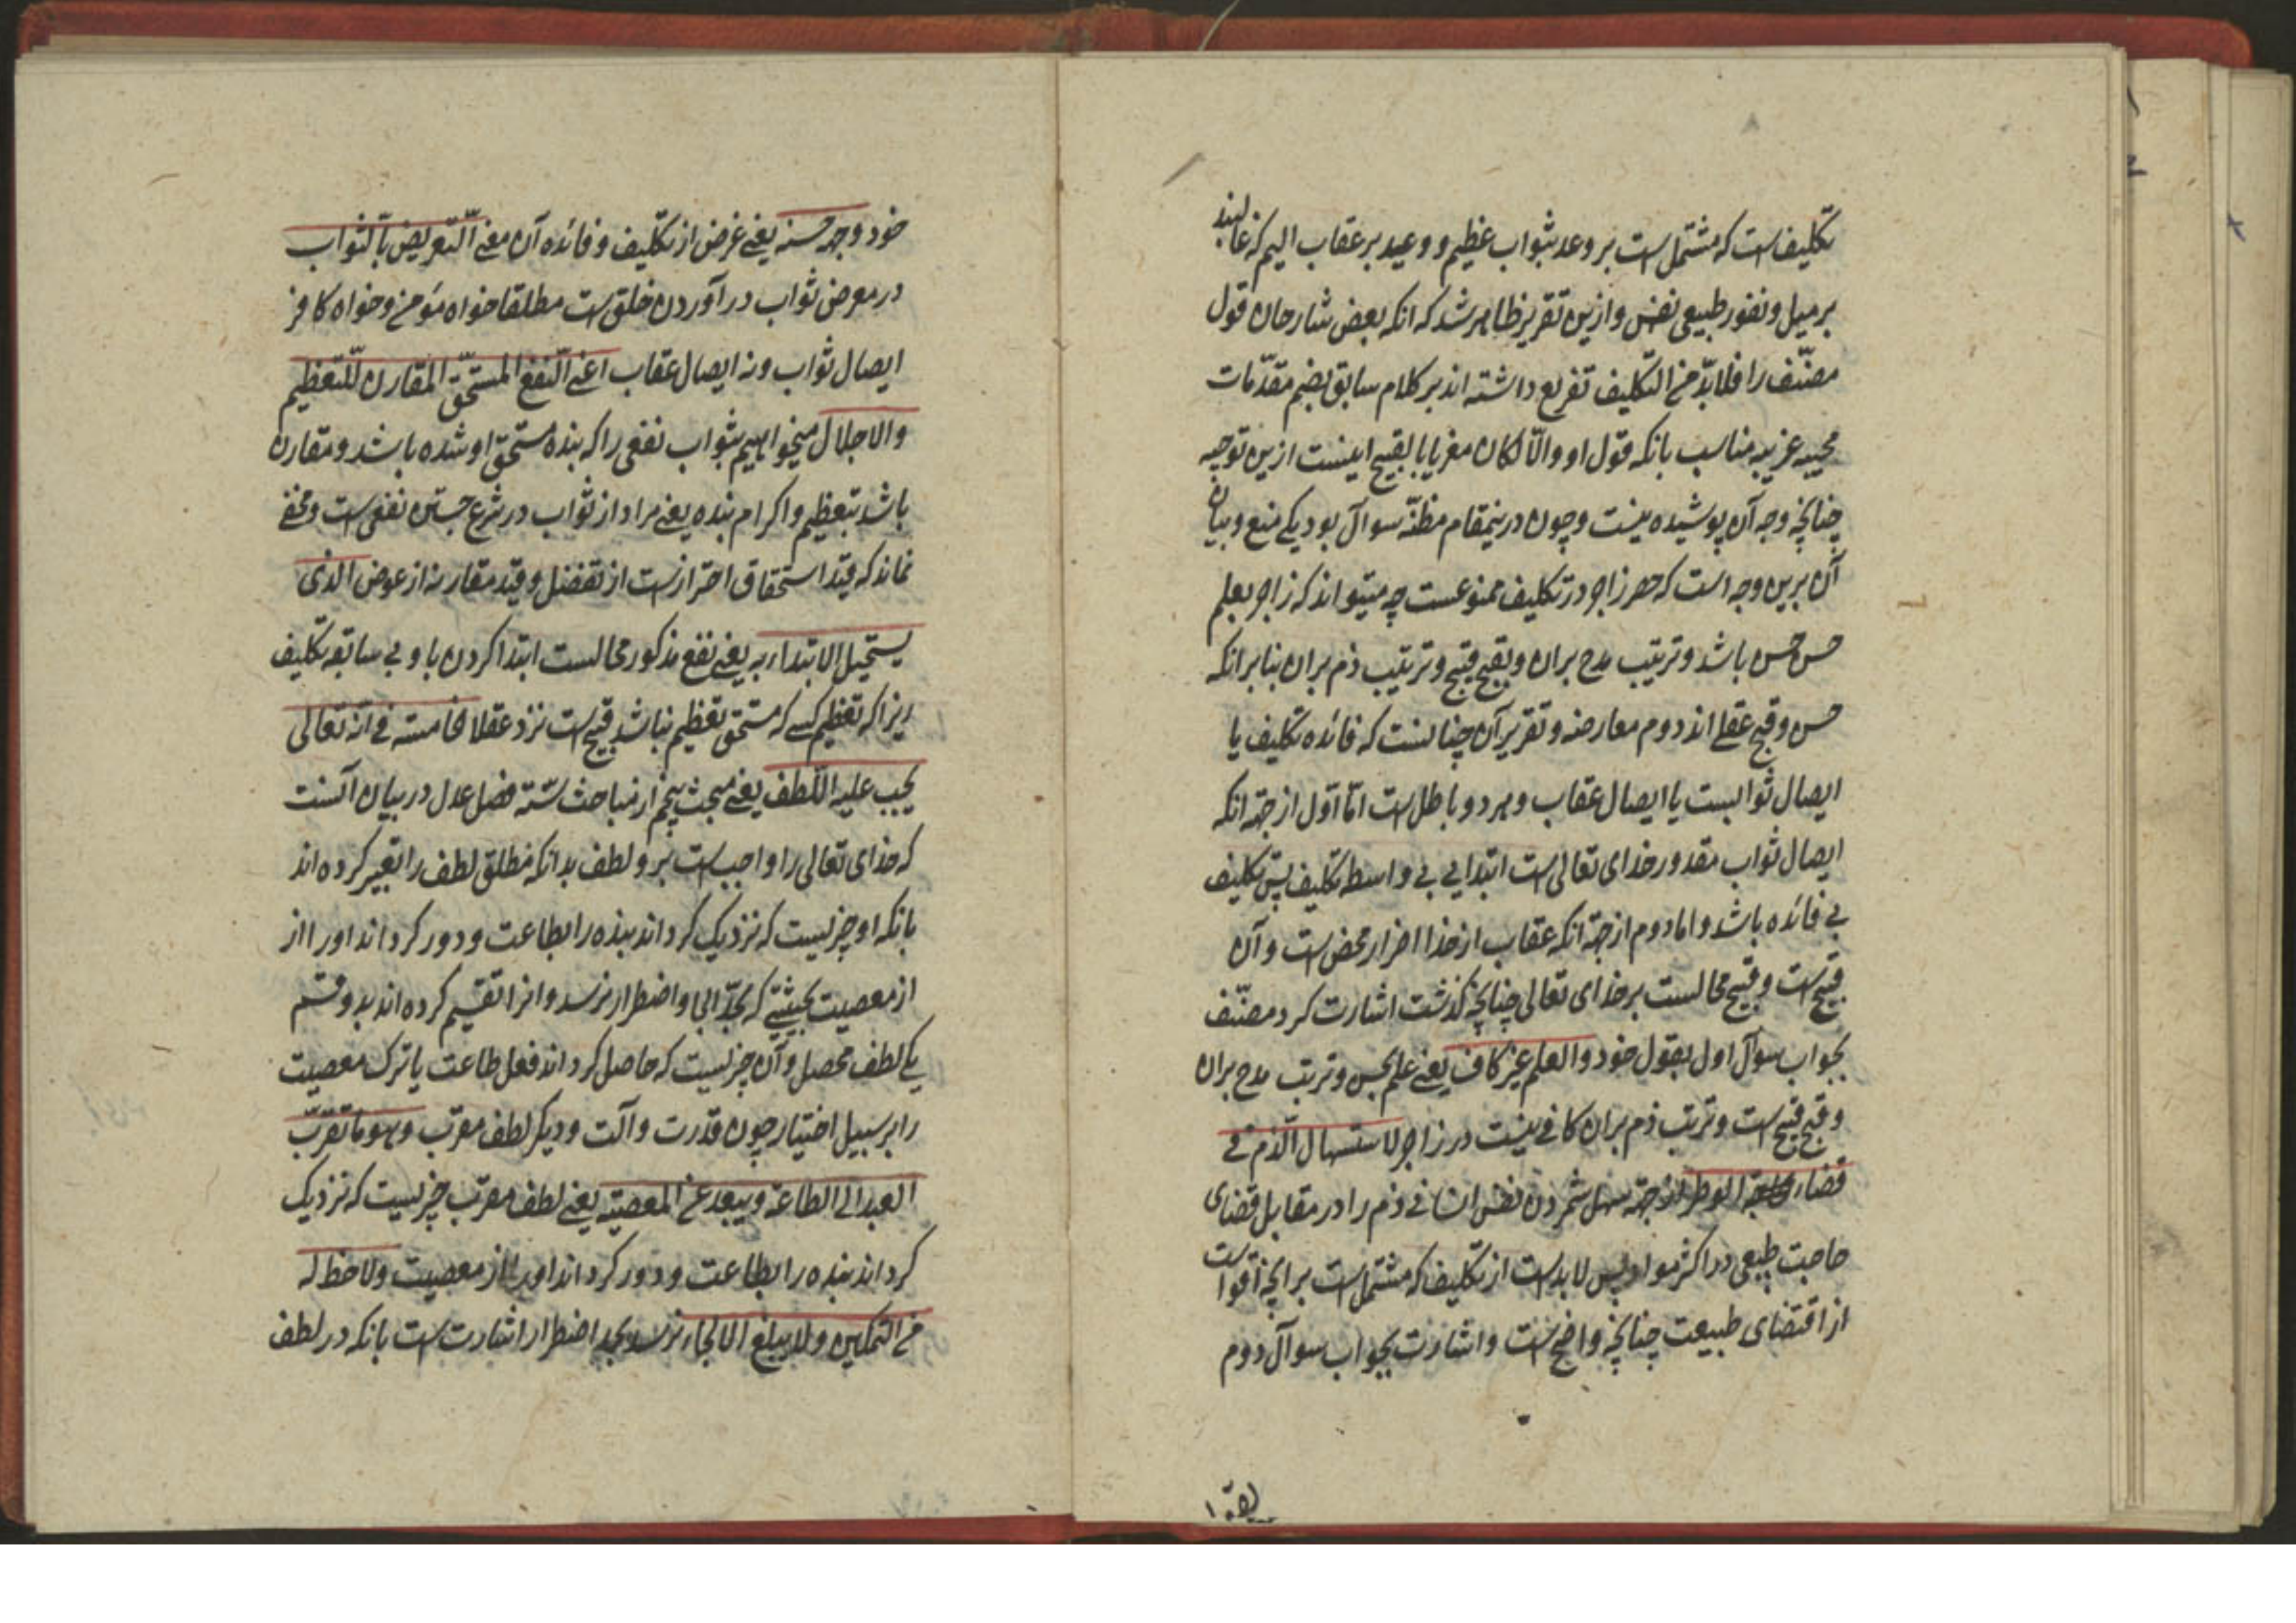 تکلیف است که مشتمل است بر وعد بثواب عظیم و وعید بر عقاب الیم که غالبند
بر میل و نفور طبیعی نفس و ازین تقریر ظاهر شد که انکه بعض شارحان قول
مصنّف را فلا بدّ من التکلیف تفریع داشته اند بر کلام سابق بضم مقدّمات
عجیبه غریبه مناسب بانکه قول او والّا لکان مغریا بالقبیح ابیست ازین توجیه
چنانچه وجه آن پوشیده نیست و چون درینمقام مظنّه سوآل بود یکی منع و بیان
آن برین وجه است که حصر زاجر در تکلیف ممنوعست چه میتواند که زاجر بعلم
حسن حسن باشد و ترتیب مدح بران و بقبح قبیح و ترتیب ذم بران بنابرانکه
حسن و قبح عقلی اند دوم معارضه و تقریر آن چنانست که فائده تکلیف یا
ایصال ثوابست یا ایصال عقاب و هر دو باطل است امّا اوّل از جهة انکه
ایصال ثواب مقدور خدای تعالی است ابتدایی بی واسطه تکلیف پس تکلیف
بی فائده باشد و اما دوم از جهة انکه عقاب از خدا اضرار محض است و آن
قبیح است و قبیح محالست بر خدای تعالی چنانچه گذشت اشارت کرد مصنّف
بجواب سوآل اول بقول خود والعلم غیر کاف یعنی علم بحسن و ترتب مدح بران
و قبح قبیح است و ترتب ذم بران کافی نیست در زاجر لاستسهال الذم فی
قضاء الوطر از جهة سهل شمردن نفس انسانی ذم را در مقابل قضای
حاجت طبیعی در اکثر مواد پس لابد است از تکلیف که مشتمل است بر آنچه اقواست
از اقتضای طبیعت چنانچه واضح است و اشارت بجواب سوآل دوم
خود وجهة حسنه یعنی غرض از تکلیف و فائده آن معنی التعریض بالثواب
در معرض ثواب در آوردن خلق است مطلقا خواه مؤمن و خواه کافر
ایصال ثواب و نه ایصال عقاب اعنی النّفع المستحقّ المقارن للتعظیم
والاجلال میخواهیم بثواب نفعی را که بنده مستحق او شده باشد و مقارن
باشد بتعظیم و اکرام بنده یعنی مراد از ثواب در شرع چنین نفعی است و مخفی
نماند که قید استحقاق احترازست از تفضل و قید مقارنه از عوض الذی
یستحیل الابتداء به یعنی نفع مذکور محالست ابتدا کردن باو بی سابقه تکلیف
زیرا که تعظیم کسی که مستحق تعظیم نباشد قبیح است نزد عقلا خامسة فی انّه تعالی
یجب علیه اللّطف یعنی مبحث پنجم از مباحث ستّه فصل عدل در بیان آنست
که خدای تعالی را واجب است برو لطف بدانکه مطلق لطف را تعبیر کرده اند
بانکه او چیزیست که نزدیک گرداند بنده را بطاعت و دور گرداند او را از
از معصیت بحیثیتی که بحدّ الجا و اضطرار نرسد و انرا تقسیم کرده اند بدو قسم
یکی لطف محصل و آن چیزیست که حاصل گرداند فعل طاعت یا ترک معصیت
را بر سبیل اختیار چون قدرت و آلت و دیگر لطف مقرّب و هو ما تقرّب
العبد الی الطاعة و یبعد عن المعصیة یعنی لطف مقرّب چیزیست که نزدیک
گرداند بنده را بطاعت و دور گرداند او را از معصیت ولا حظ له
فی التمکین ولا یبلغ الالجاء نرسد بحد اضطرار اشارت است بانکه در لطف